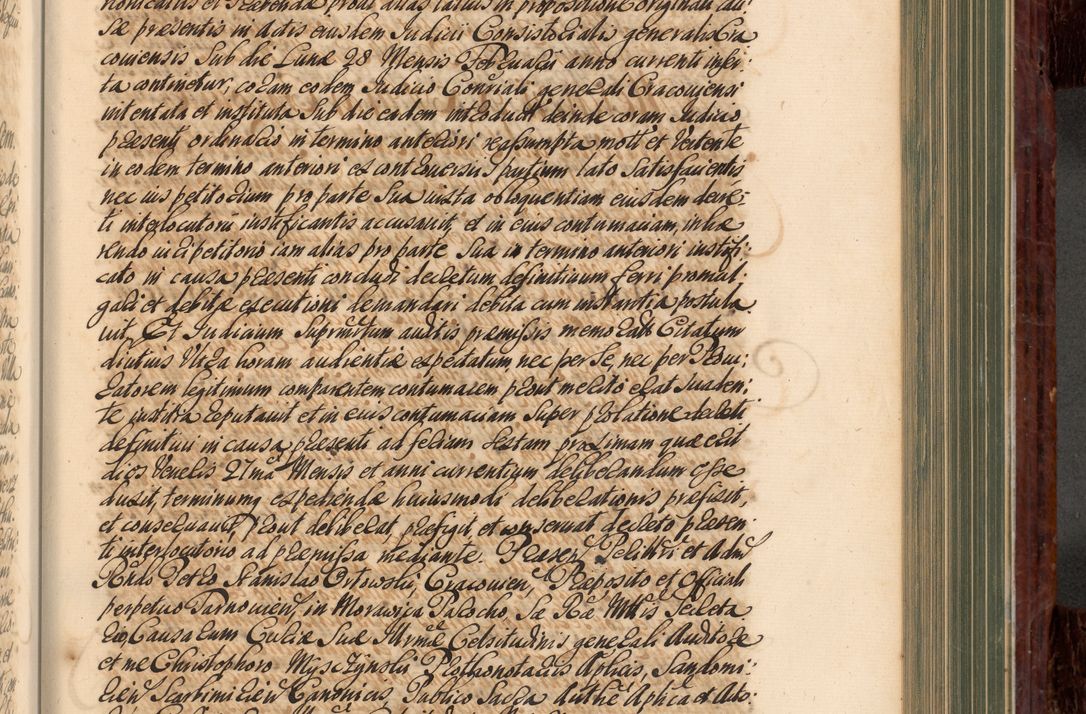 sæ præsentis in actis eiusdem Judicii Consistorialis generalis Cra
coviensis Sub die Lunæ 28 Mensis Februarii anno currenti inser:
ta continetur, coram eodem Judicio Consriali gener̃ali Cracoviensi
intentata et instituta Sub die eadem introduct deinde coram Judicio
præsenti ordinario in termino anteriori reassumpta mott et vertente
in eodem termino anteriori ex controversiis partium lato Satisfacientis
nec ius petitorium pro parte Sua iuxta obloquentiam eiusdem decre:
ti interlocutorii iustificantis accusavit, et in eius contumaciam, inhæ
rendo iuri petitorio iam alias pro parte Sua in termino anteriori iustifi:
cato in causa præsenti concludi decretum definitivum ferri promul:
gari et debitæ executioni demandari debita cum instantia postula
vit, Et Judicium Supranñtum auditis præmissis memorat Citatum
diutius Ultra horam audientiæ expectatum, nec per Se, nec per Procu:
ratorem legitimum comparentem contumacem prout merito erat Suaden:
te iustitia reputavit et in eius contumaciam Super prolatione decreti
definitivi in causa præsenti ad feriam sextam proximam quæ erit
dies Veneris 21mã Mensis et anni currentium deliberandum esse
duxit, terminumq expediendæ huiusmodi deliberationis præfixit,
et conservavit, Prout deliberat præfigit, et conservat decreto præsen:
ti interlocutorio ad præmissa mediante. Præsent Perilltri et Adm
Rñdo Petro Stanislao Orłowski, Cracovien, Præposito et Officiali
perpetuo Tarnovien, in Morawica Parocho, Sa Ræ Mttis Secreta
rio Causarum Curiæ Suæ Illrmæ Celsitudinis generali Auditore
et me Christophoro Myszczynski Prothonotarius Aplicus, Sandomi:
rien Scarbimirien Canonicis, Publico Sacra Authẽ Aplica et Ado: